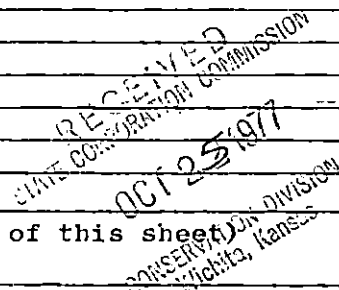 RECEIVED
STATE CORPORATION COMMISSION
OCT 25 1977
CONSERVATION DIVISION
Wichita, Kansas
of this sheet)